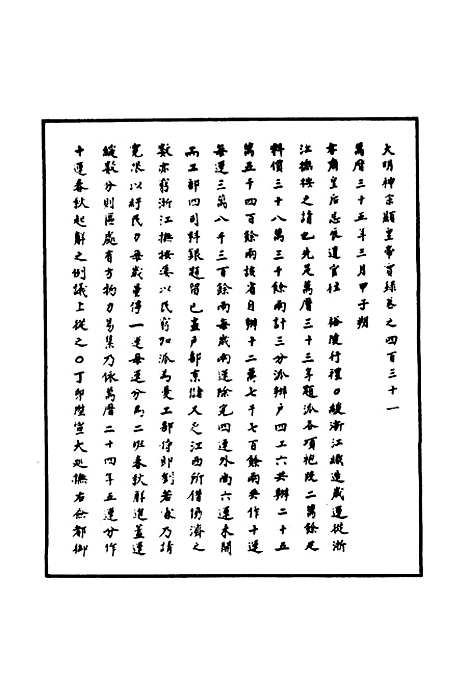 大明神宗顯皇帝實錄卷之四百三十一
萬曆三十五年三月甲子朔
孝肅皇后忌辰遣官往 裕陵行禮○緩浙江織造歲運從浙
江撫按之請也先是萬曆三十三年題派各項袍段二萬餘疋
料價三十八萬三千餘兩計三分派辦戶四工六共辦二十五
萬五千四百餘兩該省自辦十二萬七千七百餘兩共作十運
每運三萬八千三百餘兩每歲兩運除完四運外尚六運未開
而工部四司料銀題留已盡戶部京儲又乏江西所借協濟之
數亦窮浙江撫按溪以民窮加派為憂工部侍郎劉若 乃請
寬限以紓民力每歲量停一運每運分為二班春秋解進蓋運
緩數分則區處有方物力易集乃依萬曆二十四年五運分作
十運春秋起解之例議上從之○丁卯陞宣大巡撫右僉都御